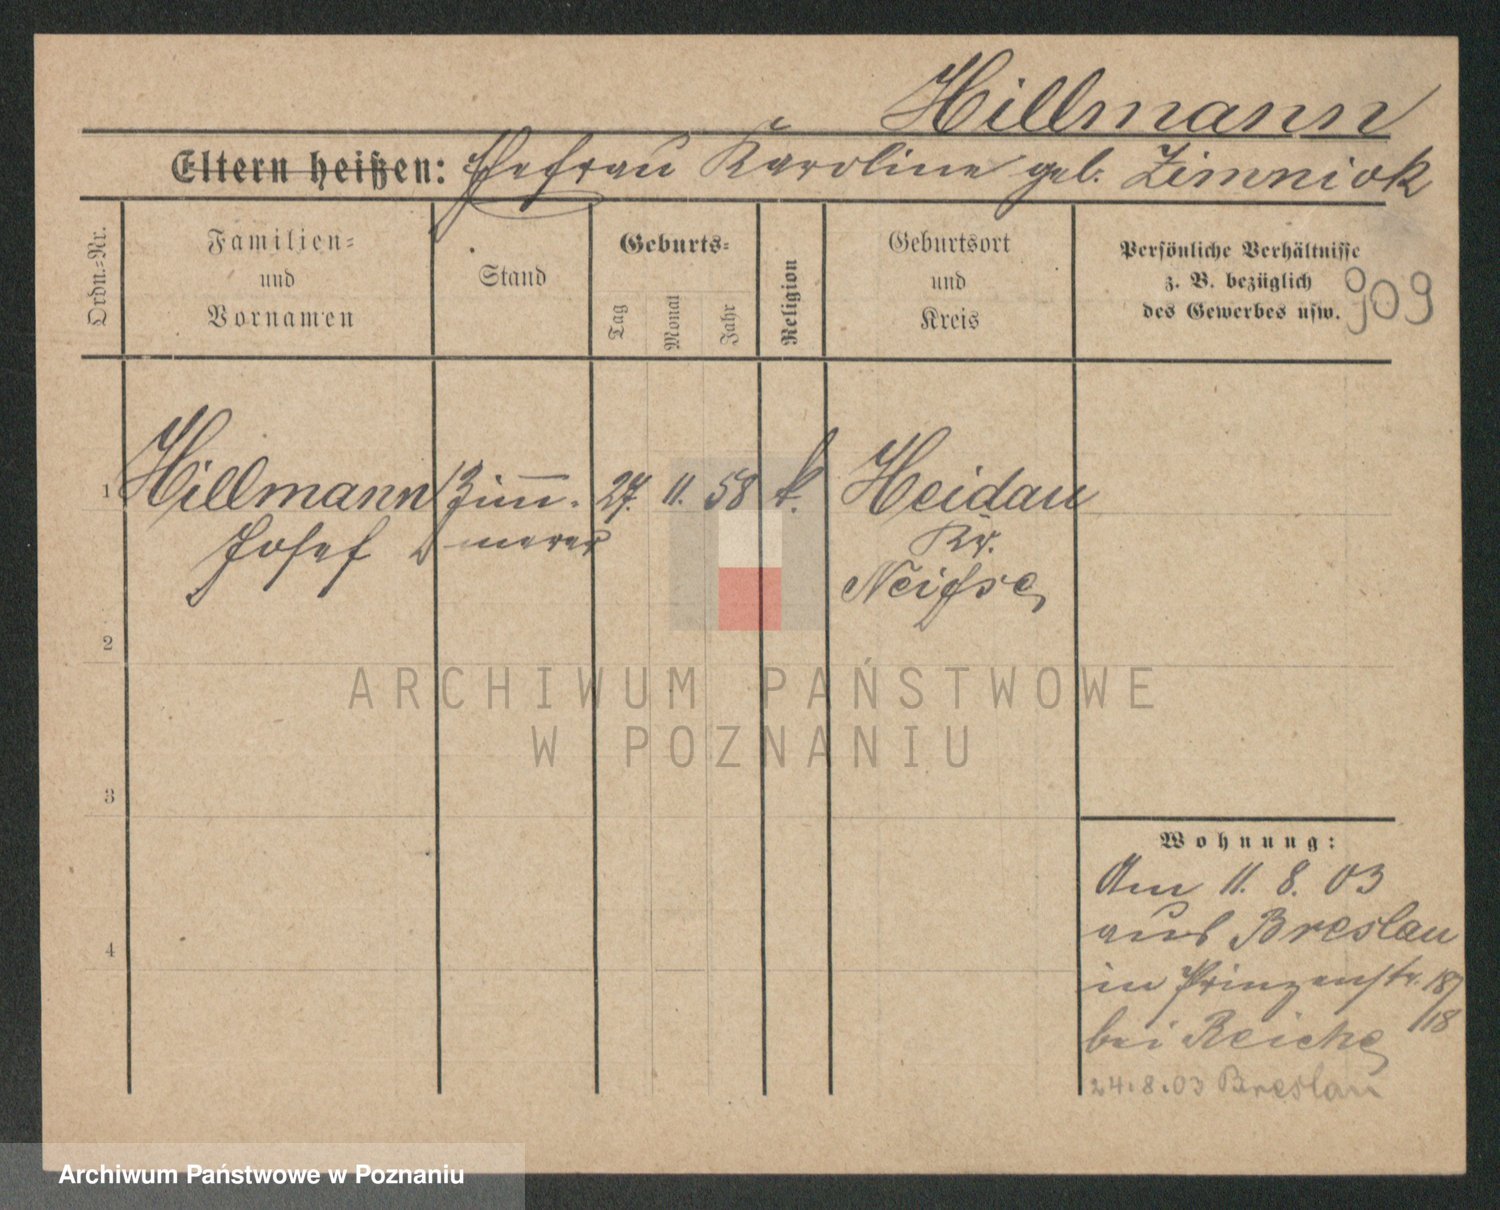 Hillmann
Eltern heißen: Ehefrau Karoline geb. Zimniok
Ordn.-Nr.
Familien-
und
Vornamen
Stand
Geburts-
Tag
Monat
Jahr
Religion
Geburtsort
und
Kreis
Persönliche Verhältnisse
z. B. bezüglich
des Gewerbes usw.
909
1 Hillmann Zimm- 27. 11. 58 k. Heidau
Josef merer Kr.
Neisse
2
3
4
Wohnung:
Am 11. 8. 03
aus Breslau
in Prinzenstr.
18
bei Reiche
24.8.03 Breslau
ARCHIWUM PAŃSTWOWE
W POZNANIU
Archiwum Państwowe w Poznaniu